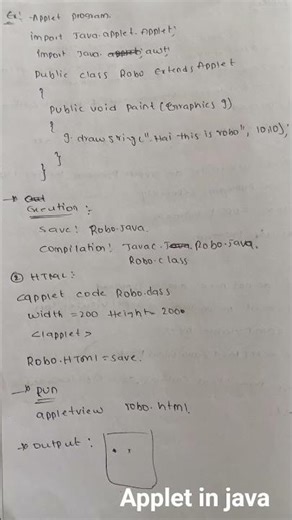 Ex:- Applet program
import Java.applet.Applet;
import Java. awt;
Public class Robo Extends Applet
{
public void paint (Graphics g)
{
g. draw sring (" Hai this is robo", 10,10);
}
}
Excution :-
Save: Robo.java.
compilation: Javac. Robo.java.
Robo.class
② HTML :-
<applet code Robo.class
width =200 Height= 200
</applet>
Robo.HTml = save.
Run
appletview robo.html.
output :
Applet in java